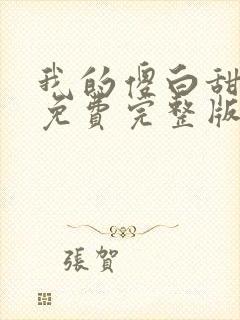 我的傻白甜
免费完整版
張賀